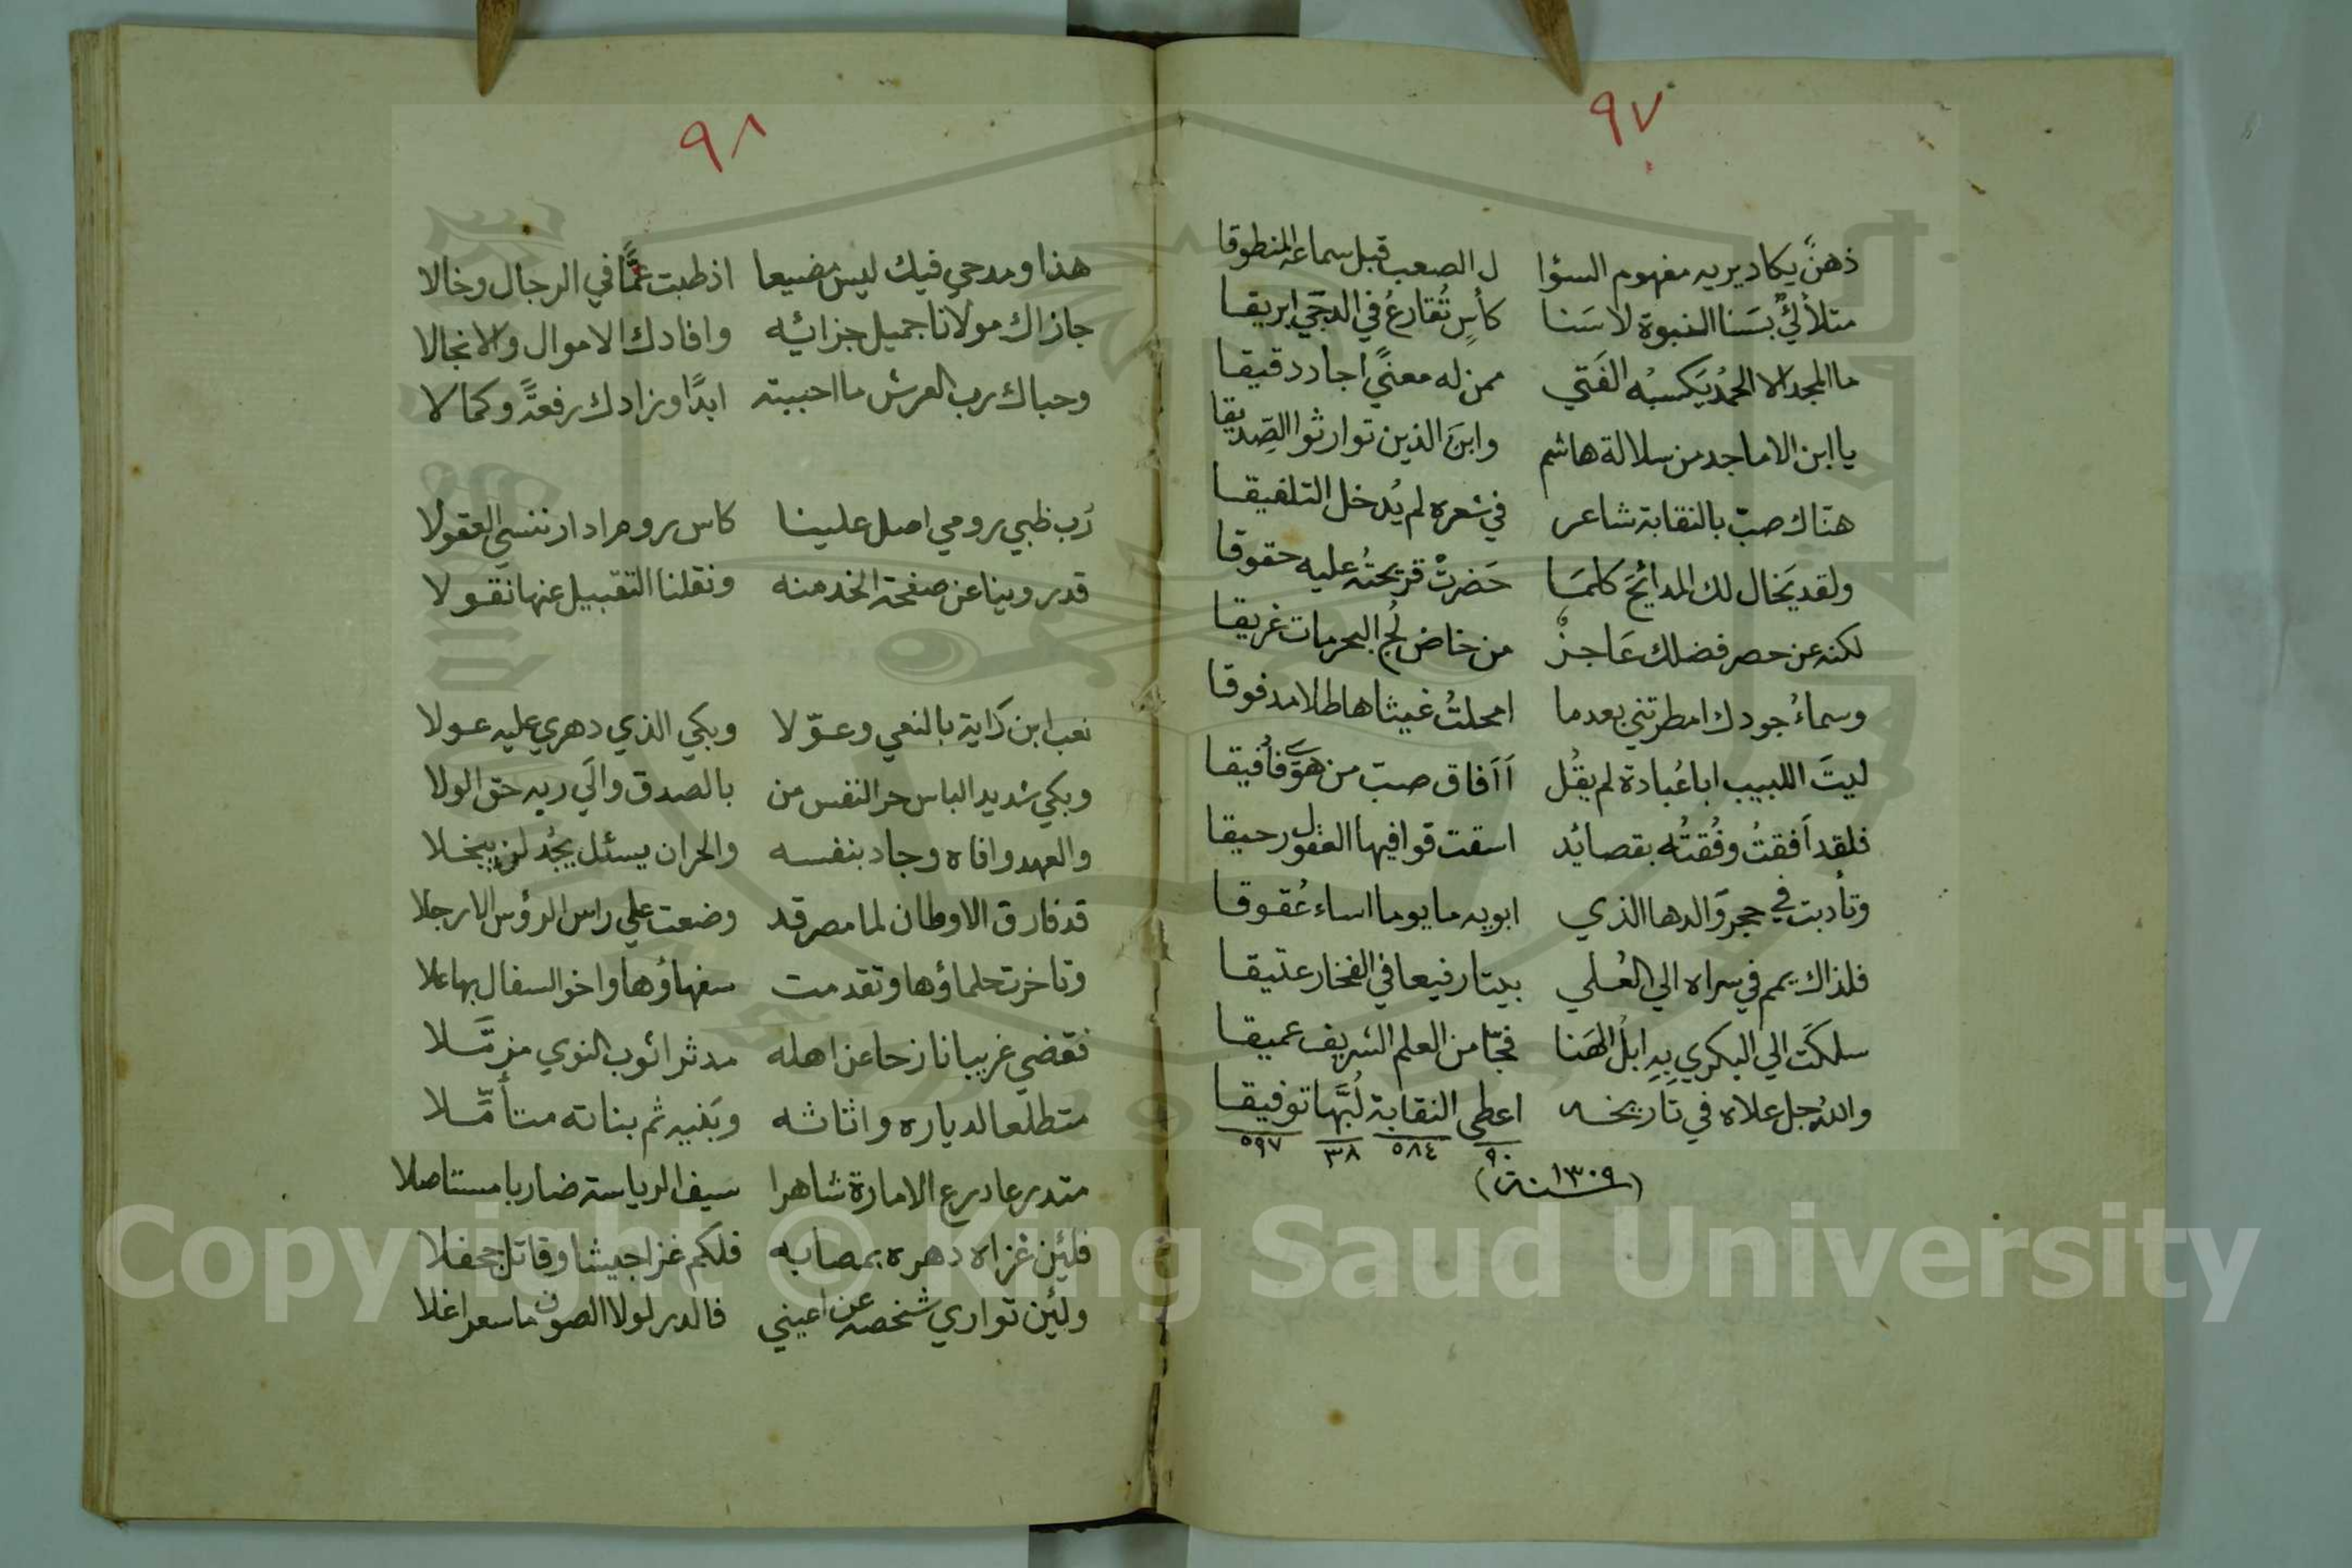 ٩٧
ذهنٌ يكاد يريه مفهوم السؤا ل الصعب قبل سماعه المنطوقا
متلألئٌ بسَنا النبوة لا سَنا كأسٍ تُقارعُ في الدجَي ابريقا
ما المجد الا الحمدُ يَكسبُه الفَتي ممن له معنيً اجاد دقيقا
يا ابن الاماجد من سلالة هاشم وابنَ الذين توارثوا الصِّديقا
هنّاك صبّ بالنقابة شاعر في شعره لم يُدخل التلفيقا
ولقد يَخال لك المدائحَ كلمَا حَضرتْ قريحتُه عليه حقوقا
لكنه عن حصر فضلك عَاجزٌ من خاض لُج البحر مات غريقا
وسماءُ جودك امطرتني بعدما امحلتُ غيثا هاطلا مدفوقا
ليتَ اللبيب ابا عُبادة لم يقُل أأفاق صبّ من هوًي فأفيقا
فلقد أفقتُ وفُقتُه بقصائد اسقت قوافيها العقول رحيقا
وتأدبت في حجر والدها الذي ابويه ما يوما اساء عُقوقا
فلذاك يمم في سراه الي العُلي بيتا رفيعا في الفخار عتيقا
سلكَت الي البكري بِهِ ابلُ الهَنا فجّا من العلم الشريف عميقا
واللهُ جل علاه في تاريخه اعطي النقابة لُبَّها توفيقا
٩٠ ٥٨٤ ٣٨ ٥٩٧
(سنة ١٣٠٩)
٩٨
هذا ومدحي فيك ليس مضيعا اذ طبت عمًّا في الرجال وخالا
جازاك مولانا جميل جزائه وافادك الاموال والانجالا
وحباك رب العرش ما احببته ابدًا وزادك رفعةً وكمالا
رُب ظبي رومي اصل علينا كاس روم ادار ننسي العقولا
قد روينا عن صفحة الخد منه ونقلنا التقبيل عنها نقولا
نعب ابن دَاية بالنعي وعوّلا وبكي الذي دهري عليه عولا
وبكي شديد الباس حر النفس من بالصدق والَي ربه حق الولا
والعهد وافاه وجاد بنفسه والحر ان يسئل يجُد لن يبخلا
قد فارق الاوطان لما مصر قد وضعت علي راس الرؤس الارجلا
وتاخرت حلماؤها وتقدمت سفهاؤها واخو السفال بها علا
فقضي غريبا نازحا عن اهله مدثرا ثوب النوي مزمّلا
متطلعا لدياره واثاثه وبَنيه ثم بناته متأمّلا
متدرعا درع الامارة شاهرا سَيف الرياسة ضاربا مستاصلا
فلئِن غزاه دهره بمصابه فلكم غزا جيشا وقاتل جحفلا
ولئِن تواري شخصه عن اعيني فالدر لولا الصون ما سعرا غلا
Copyright © King Saud University